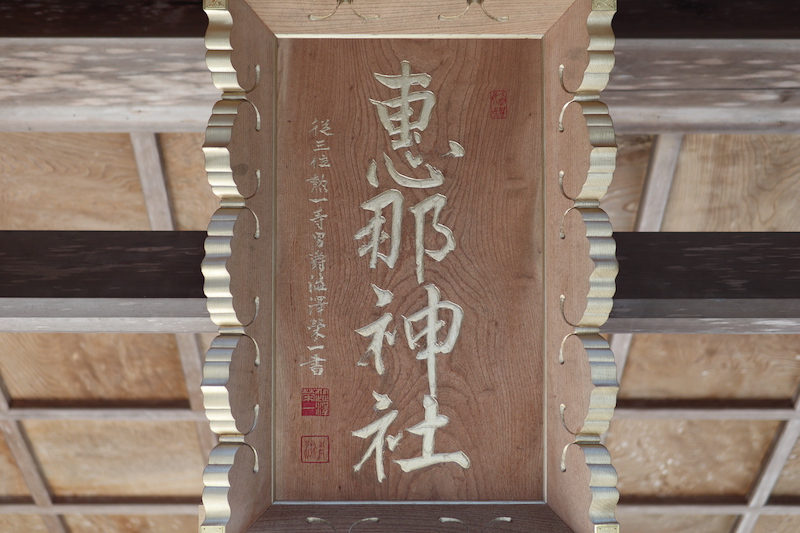 惠那神社
従三位勲一等男爵澁澤榮一書